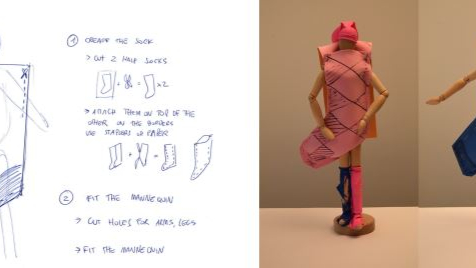 ① CREATE THE SOCK
> CUT 2 HALF SOCKS
x2
> ATTACH THEM ON TOP OF THE
OTHER ON THE BORDERS
USE STAPLERS OR PAPER
② FIT THE MANNEQUIN
> CUT HOLES FOR ARMS, LEGS
> FIT THE MANNEQUIN